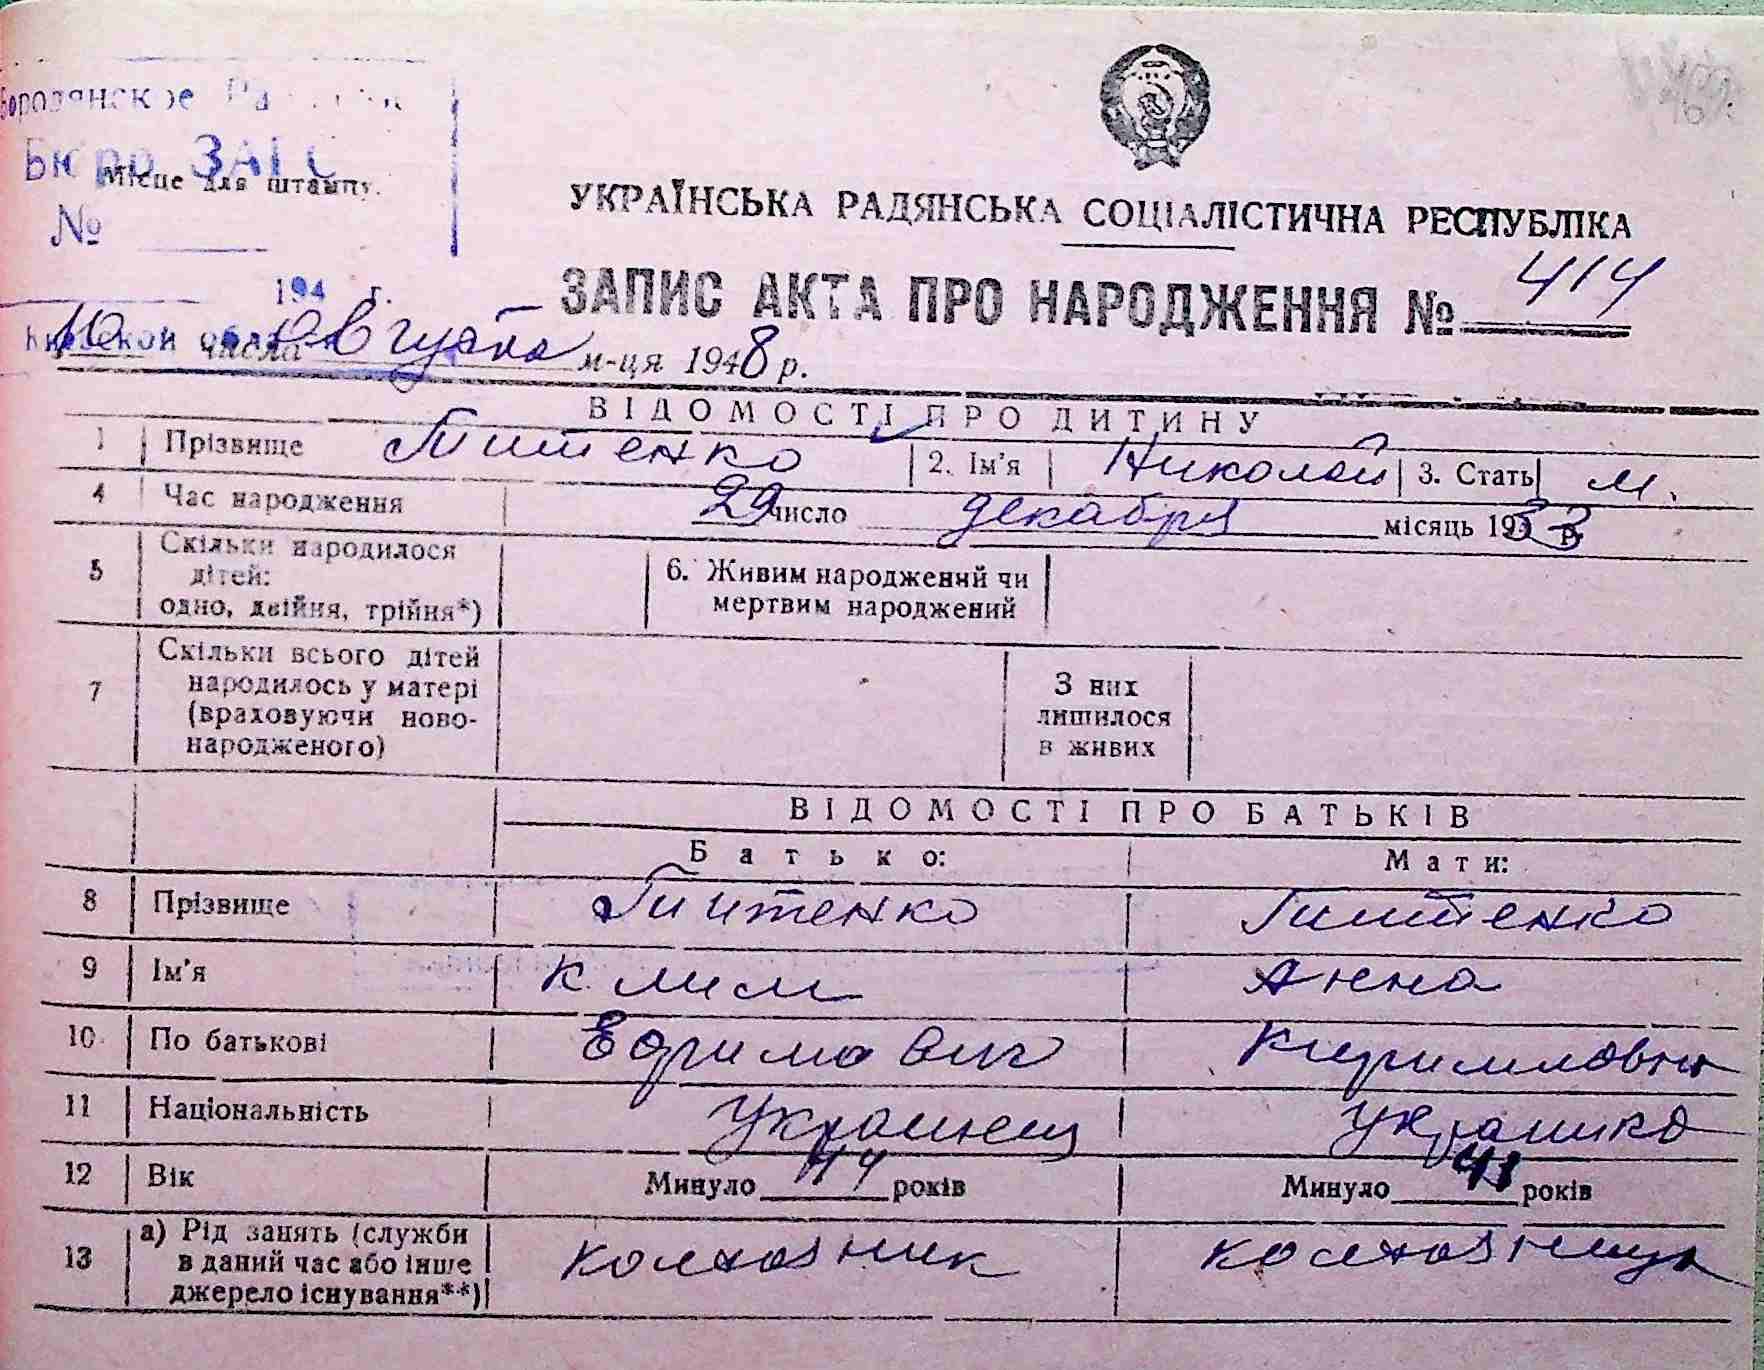 Бородянское
Бюро ЗАГС
Місце для штампу.
№
194 г.
УКРАЇНСЬКА РАДЯНСЬКА СОЦІАЛІСТИЧНА РЕСПУБЛІКА
ЗАПИС АКТА ПРО НАРОДЖЕННЯ № 414
10 числа августа м-ця 1948 р.
ВІДОМОСТІ ПРО ДИТИНУ
1 Прізвище Титенко 2. Ім'я Николай 3. Стать м.
4 Час народження 29 число декабря місяць 1933 р.
5 Скільки народилося дітей: одно, двійня, трійня*) 6. Живим народжений чи мертвим народжений
7 Скільки всього дітей народилось у матері (враховуючи ново-народженого) З них лишилося в живих
ВІДОМОСТІ ПРО БАТЬКІВ
Батько: Мати:
8 Прізвище Титенко Титенко
9 Ім'я Клим Анна
10 По батькові Ефимович Кирилловна
11 Національність Украинец Украинка
12 Вік Минуло 44 років Минуло 41 років
13 а) Рід занять (служби в даний час або інше джерело існування**) колхозник колхозница